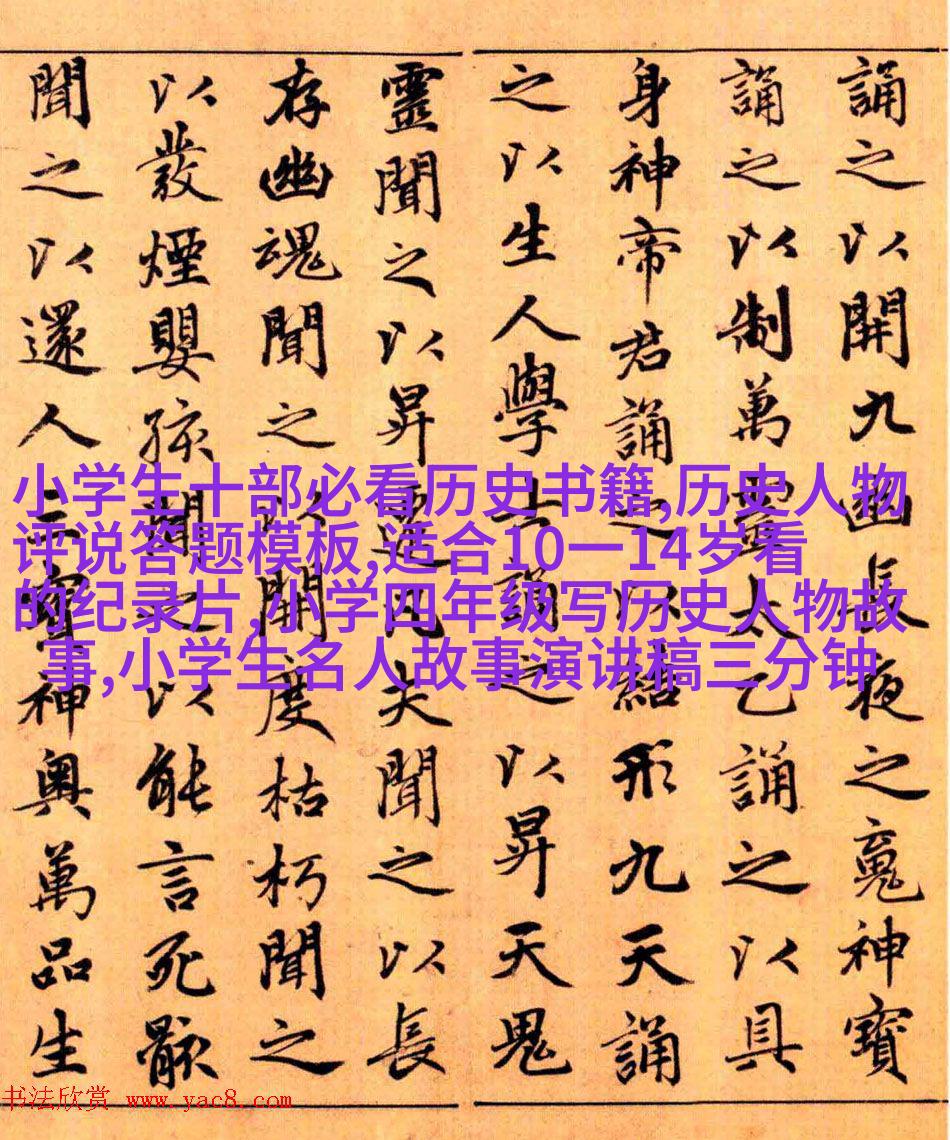 誦之以開九幽長夜之魂神寶
誦之以制萬靈太乙誦之以具
身神帝君誦之以結形九天誦
之以生人學士誦之以昇天鬼
靈聞之以昇遷凡夫聞之以長
存幽魂聞之以開度枯朽聞之
以發煙嬰孩聞之以能言死骸
聞之以還人三寶神奧萬品生
小学生十部必看历史书籍,历史人物
评说答题模板,适合10一14岁看
的纪录片,小学四年级写历史人物故
事,小学生名人故事演讲稿三分钟
书法欣赏 www.yac8.com